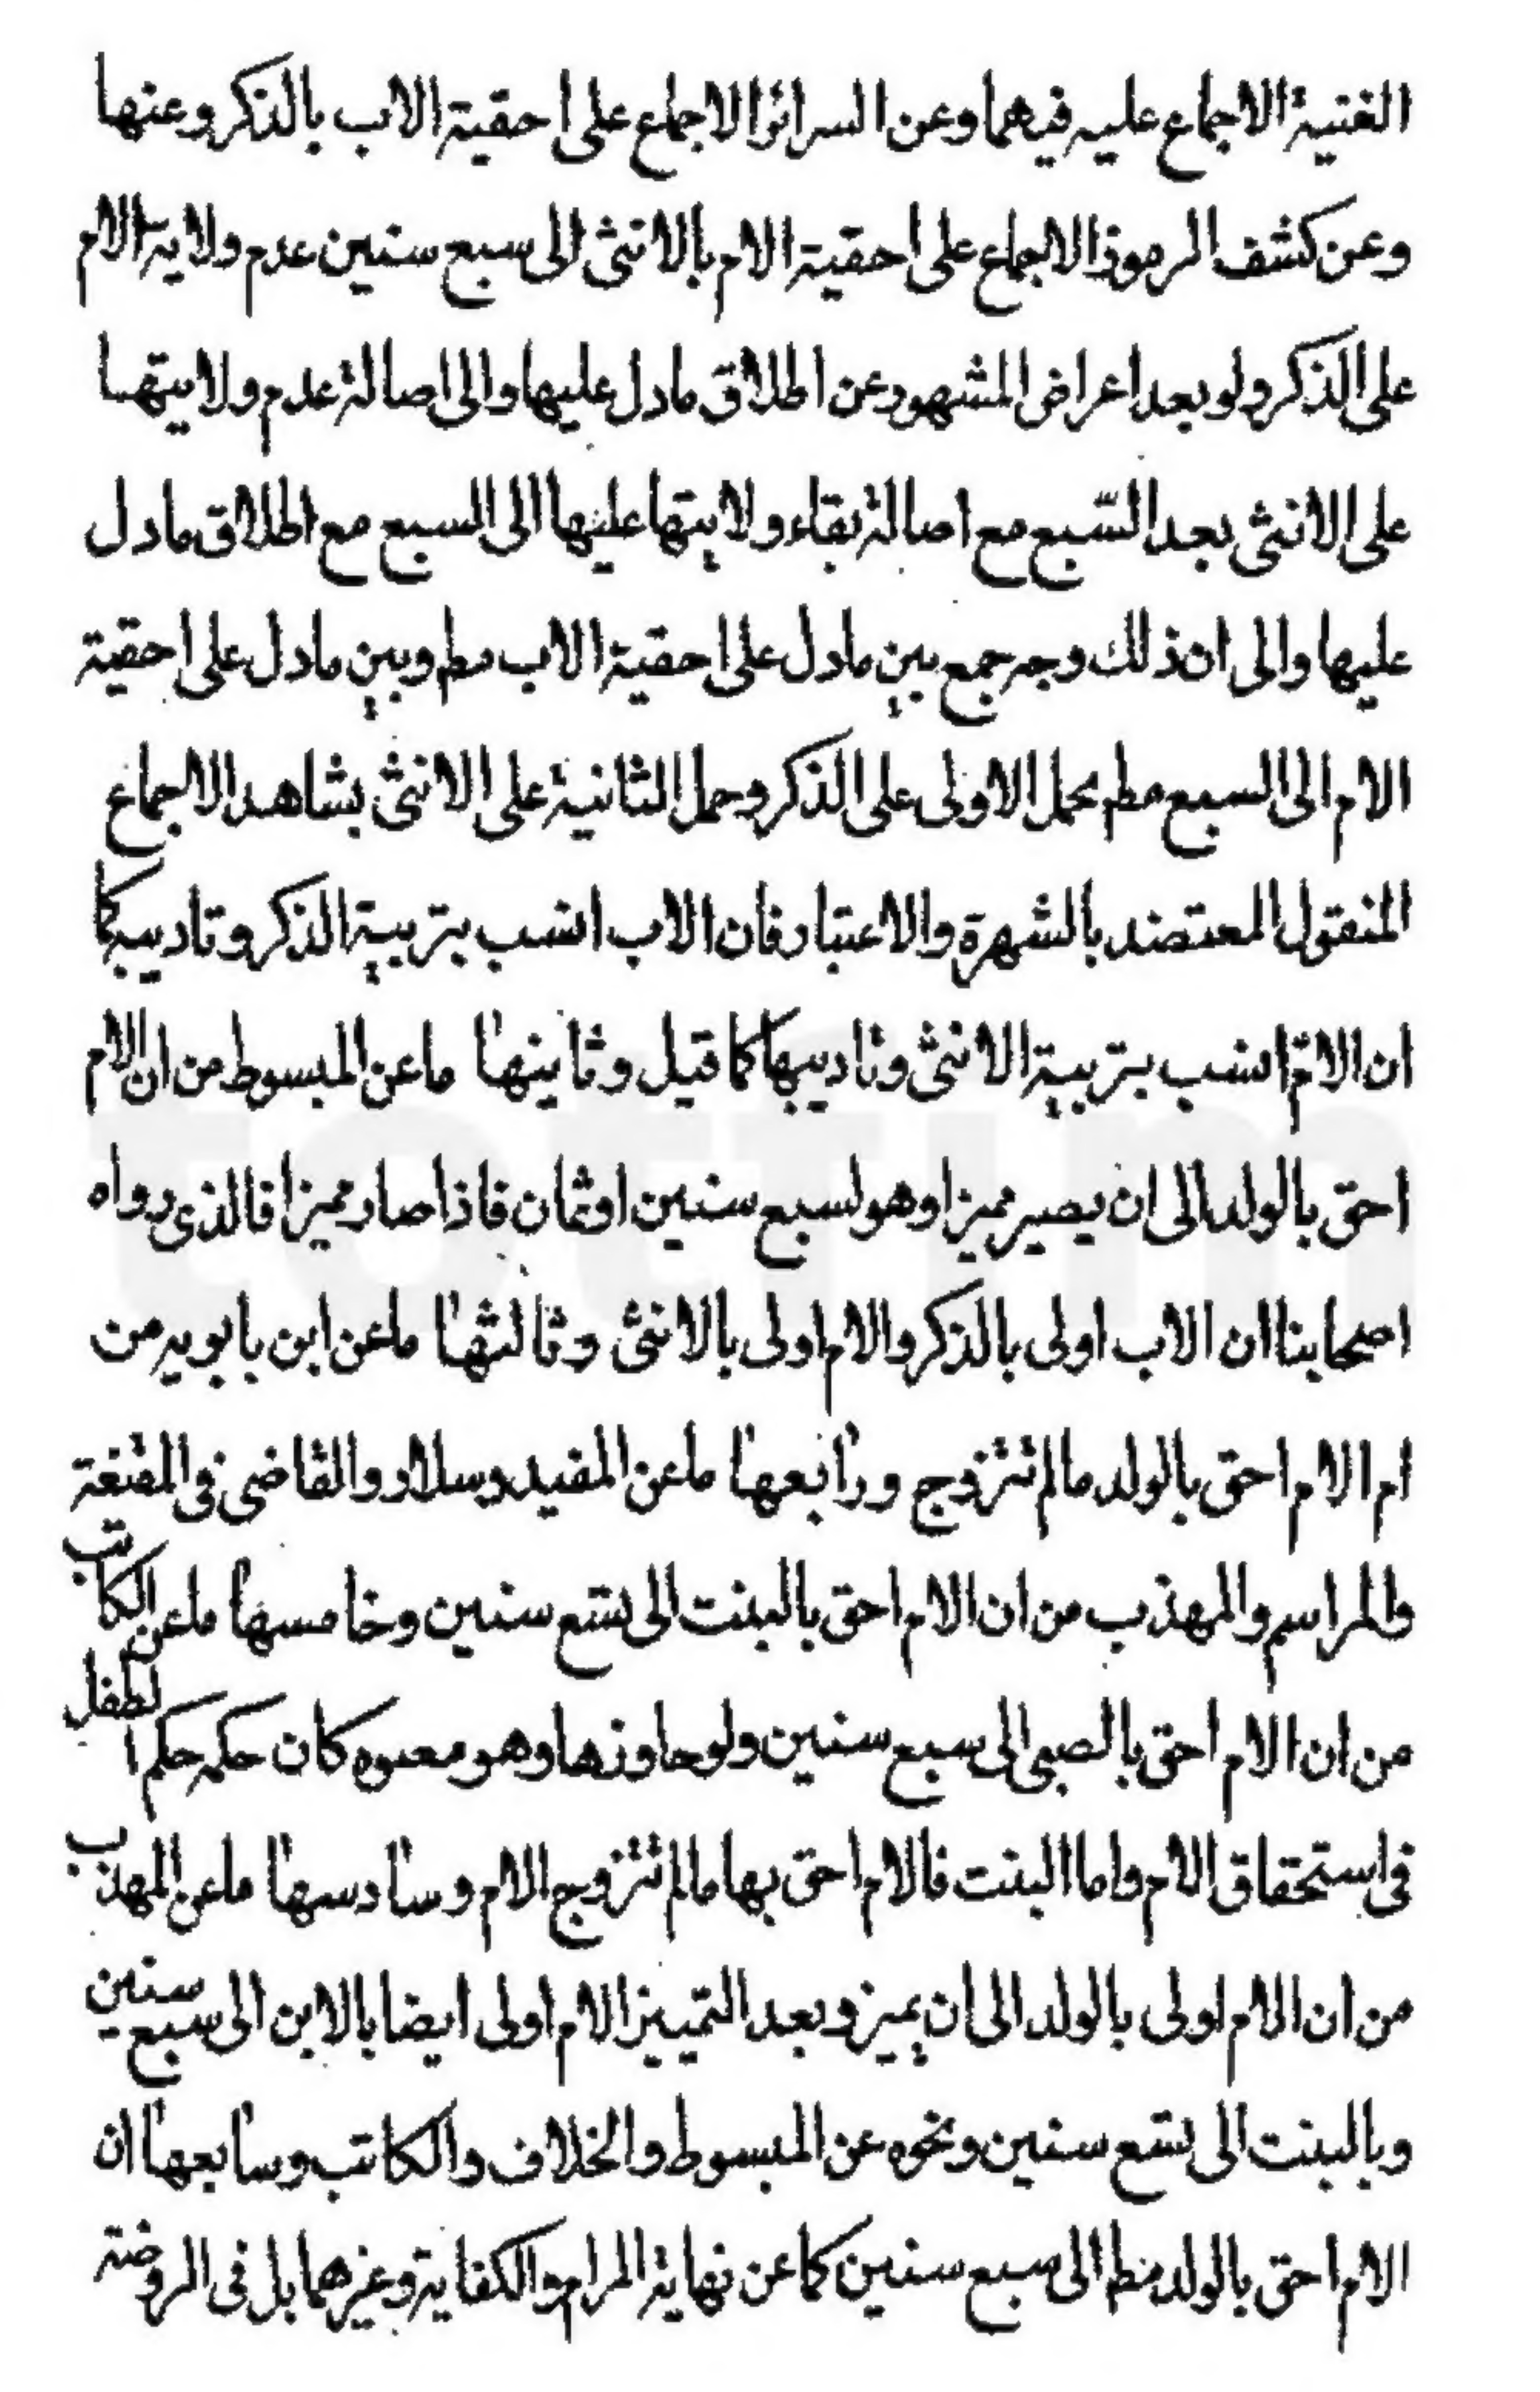 الغنية الاجماع عليه فيهما وعن السرائر الاجماع على احقية الاب بالذكر وعنها
وعن كشف الرموز الاجماع على احقية الام بالانثى الى سبع سنين عدم ولاية الام
على الذكر ولو بعد اعراض المشهور عن اطلاق مادل عليها والى اصالة عدم ولايتها
على الانثى بعد السّبع مع اصالة بقاء ولايتها عليها الى السبع مع اطلاق مادل
عليها والى ان ذلك وجه جمع بين مادل على احقية الاب مطم وبين مادل على احقية
الام الى السبع مطم بحمل الاولى على الذكر وحمل الثانية على الانثى بشاهد الاجماع
المنقول المعتضد بالشهرة والاعتبار فان الاب انسب بتربية الذكر وتاديبه كما
ان الام انسب بتربية الانثى وتاديبها كما قيل وثانيها ماعن المبسوط من ان الام
احق بالولد الى ان يصير مميزا وهو لسبع سنين اوثمان فاذا صار مميزا فالذى رواه
اصحابنا ان الاب اولى بالذكر والام اولى بالانثى وثالثها ماعن ابن بابويه من
ام الام احق بالولد مالم تتزوج ورابعها ماعن المفيد وسلار والقاضى فى المقنعة
والمراسم والمهذب من ان الام احق بالبنت الى تسع سنين وخامسها ماعن الكاتب
من ان الام احق بالصبى الى سبع سنين ولو جاوزها وهو معتوه كان حكمه حكم الطفل
فى استحقاق الام واما البنت فالام احق بها مالم تتزوج الام وسادسها ماعن المهذب
من ان الام اولى بالولد الى ان يميز وبعد التمييز الام اولى ايضا بالابن الى سبع سنين
وبالبنت الى تسع سنين ونحوه عن المبسوط والخلاف والكاتب وسابعها ان
الام احق بالولد مطم الى سبع سنين كما عن نهاية المرام والكفاية وغيرهما بل فى الروضة